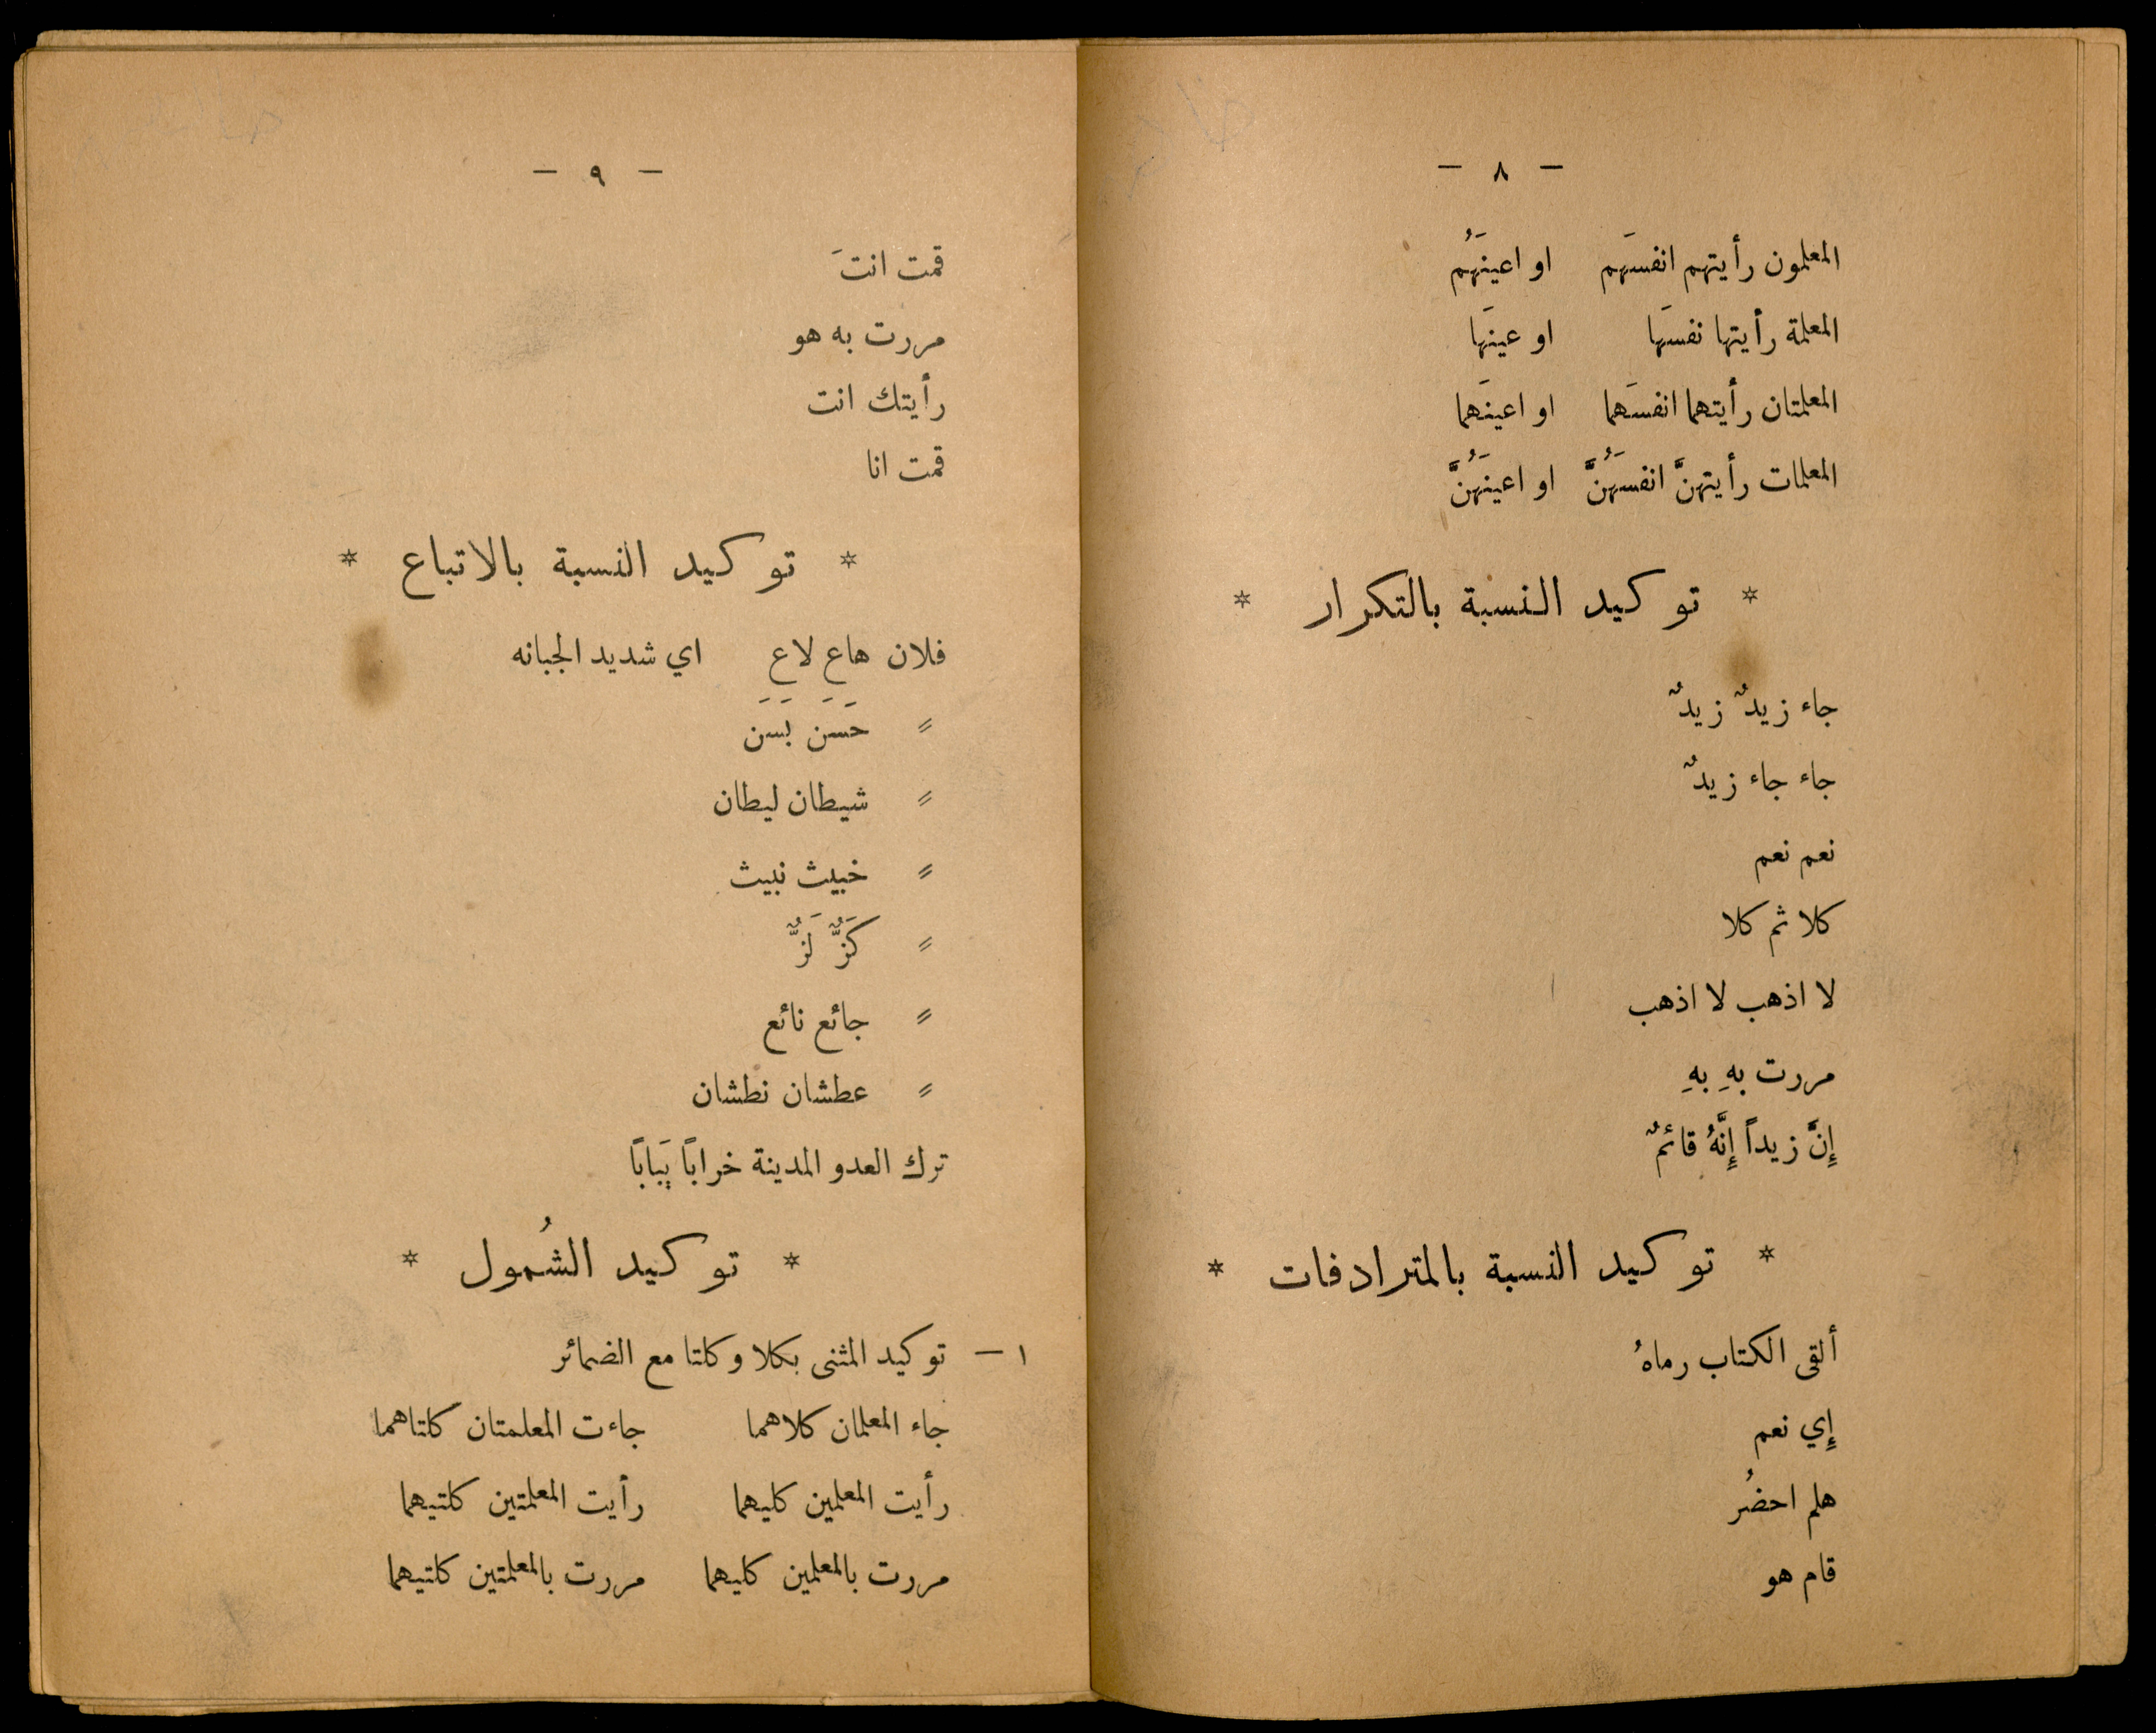 — ٨ —
المعلمون رأيتهم انفسَهم او اعينَهُم
المعلمة رأيتها نفسَها او عينَها
المعلمتان رأيتهما انفسَهما او اعينَهما
المعلمات رأيتهنَّ انفسَهُنَّ او اعينَهُنَّ
* توكيد النسبة بالتكرار *
جاء زيدٌ زيدٌ
جاء جاء زيدٌ
نعم نعم
كلا ثم كلا
لا اذهب لا اذهب
مررت بهِ بهِ
إِنَّ زيداً إِنَّهُ قائمٌ
* توكيد النسبة بالمترادفات *
ألقى الكتاب رماهُ
إِي نعم
هلم احضُر
قام هو
— ٩ —
قمت انتَ
مررت به هو
رأيتك انت
قمت انا
* توكيد النسبة بالاتباع *
فلان هاعٍ لاعٍ اي شديد الجبانه
〃 حَسَن بَسَن
〃 شيطان ليطان
〃 خبيث نبيث
〃 كَزٌّ لَزٌّ
〃 جائع نائع
〃 عطشان نطشان
ترك العدو المدينة خراباً يَبَاباً
* توكيد الشُمول *
١ — توكيد المثنى بكلا وكلتا مع الضمائر
جاء المعلمان كلاهما جاءت المعلمتان كلتاهما
رأيت المعلمين كليهما رأيت المعلمتين كلتيهما
مررت بالمعلمين كليهما مررت بالمعلمتين كلتيهما